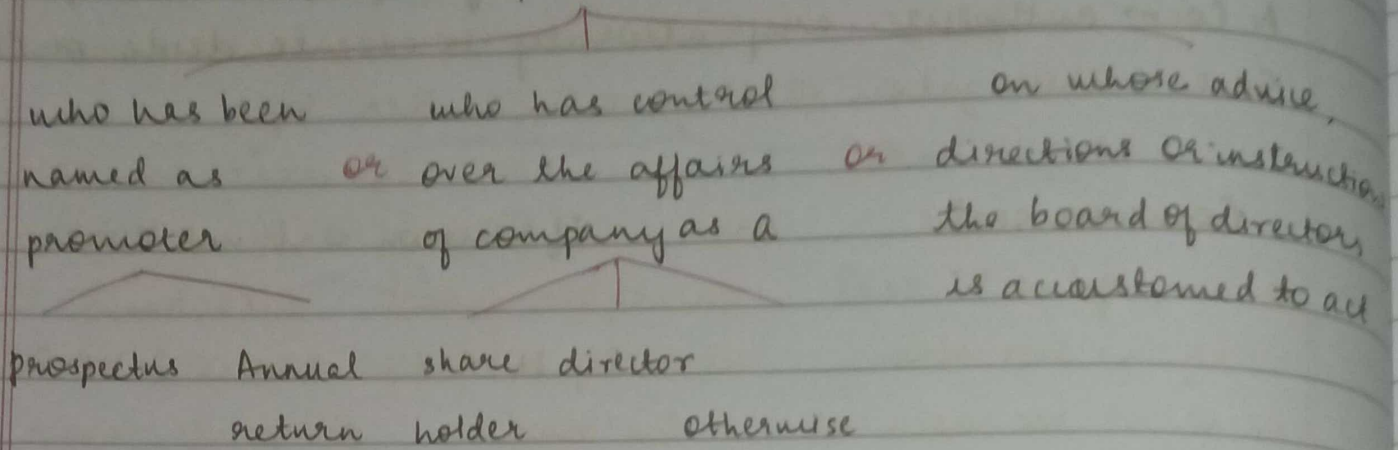 who has been
named as
promoter
or
who has control
over the affairs
of company as a
or
on whose advice,
directions or instructions
the board of directors
is accustomed to act
prospectus
Annual
return
share
holder
director
otherwise